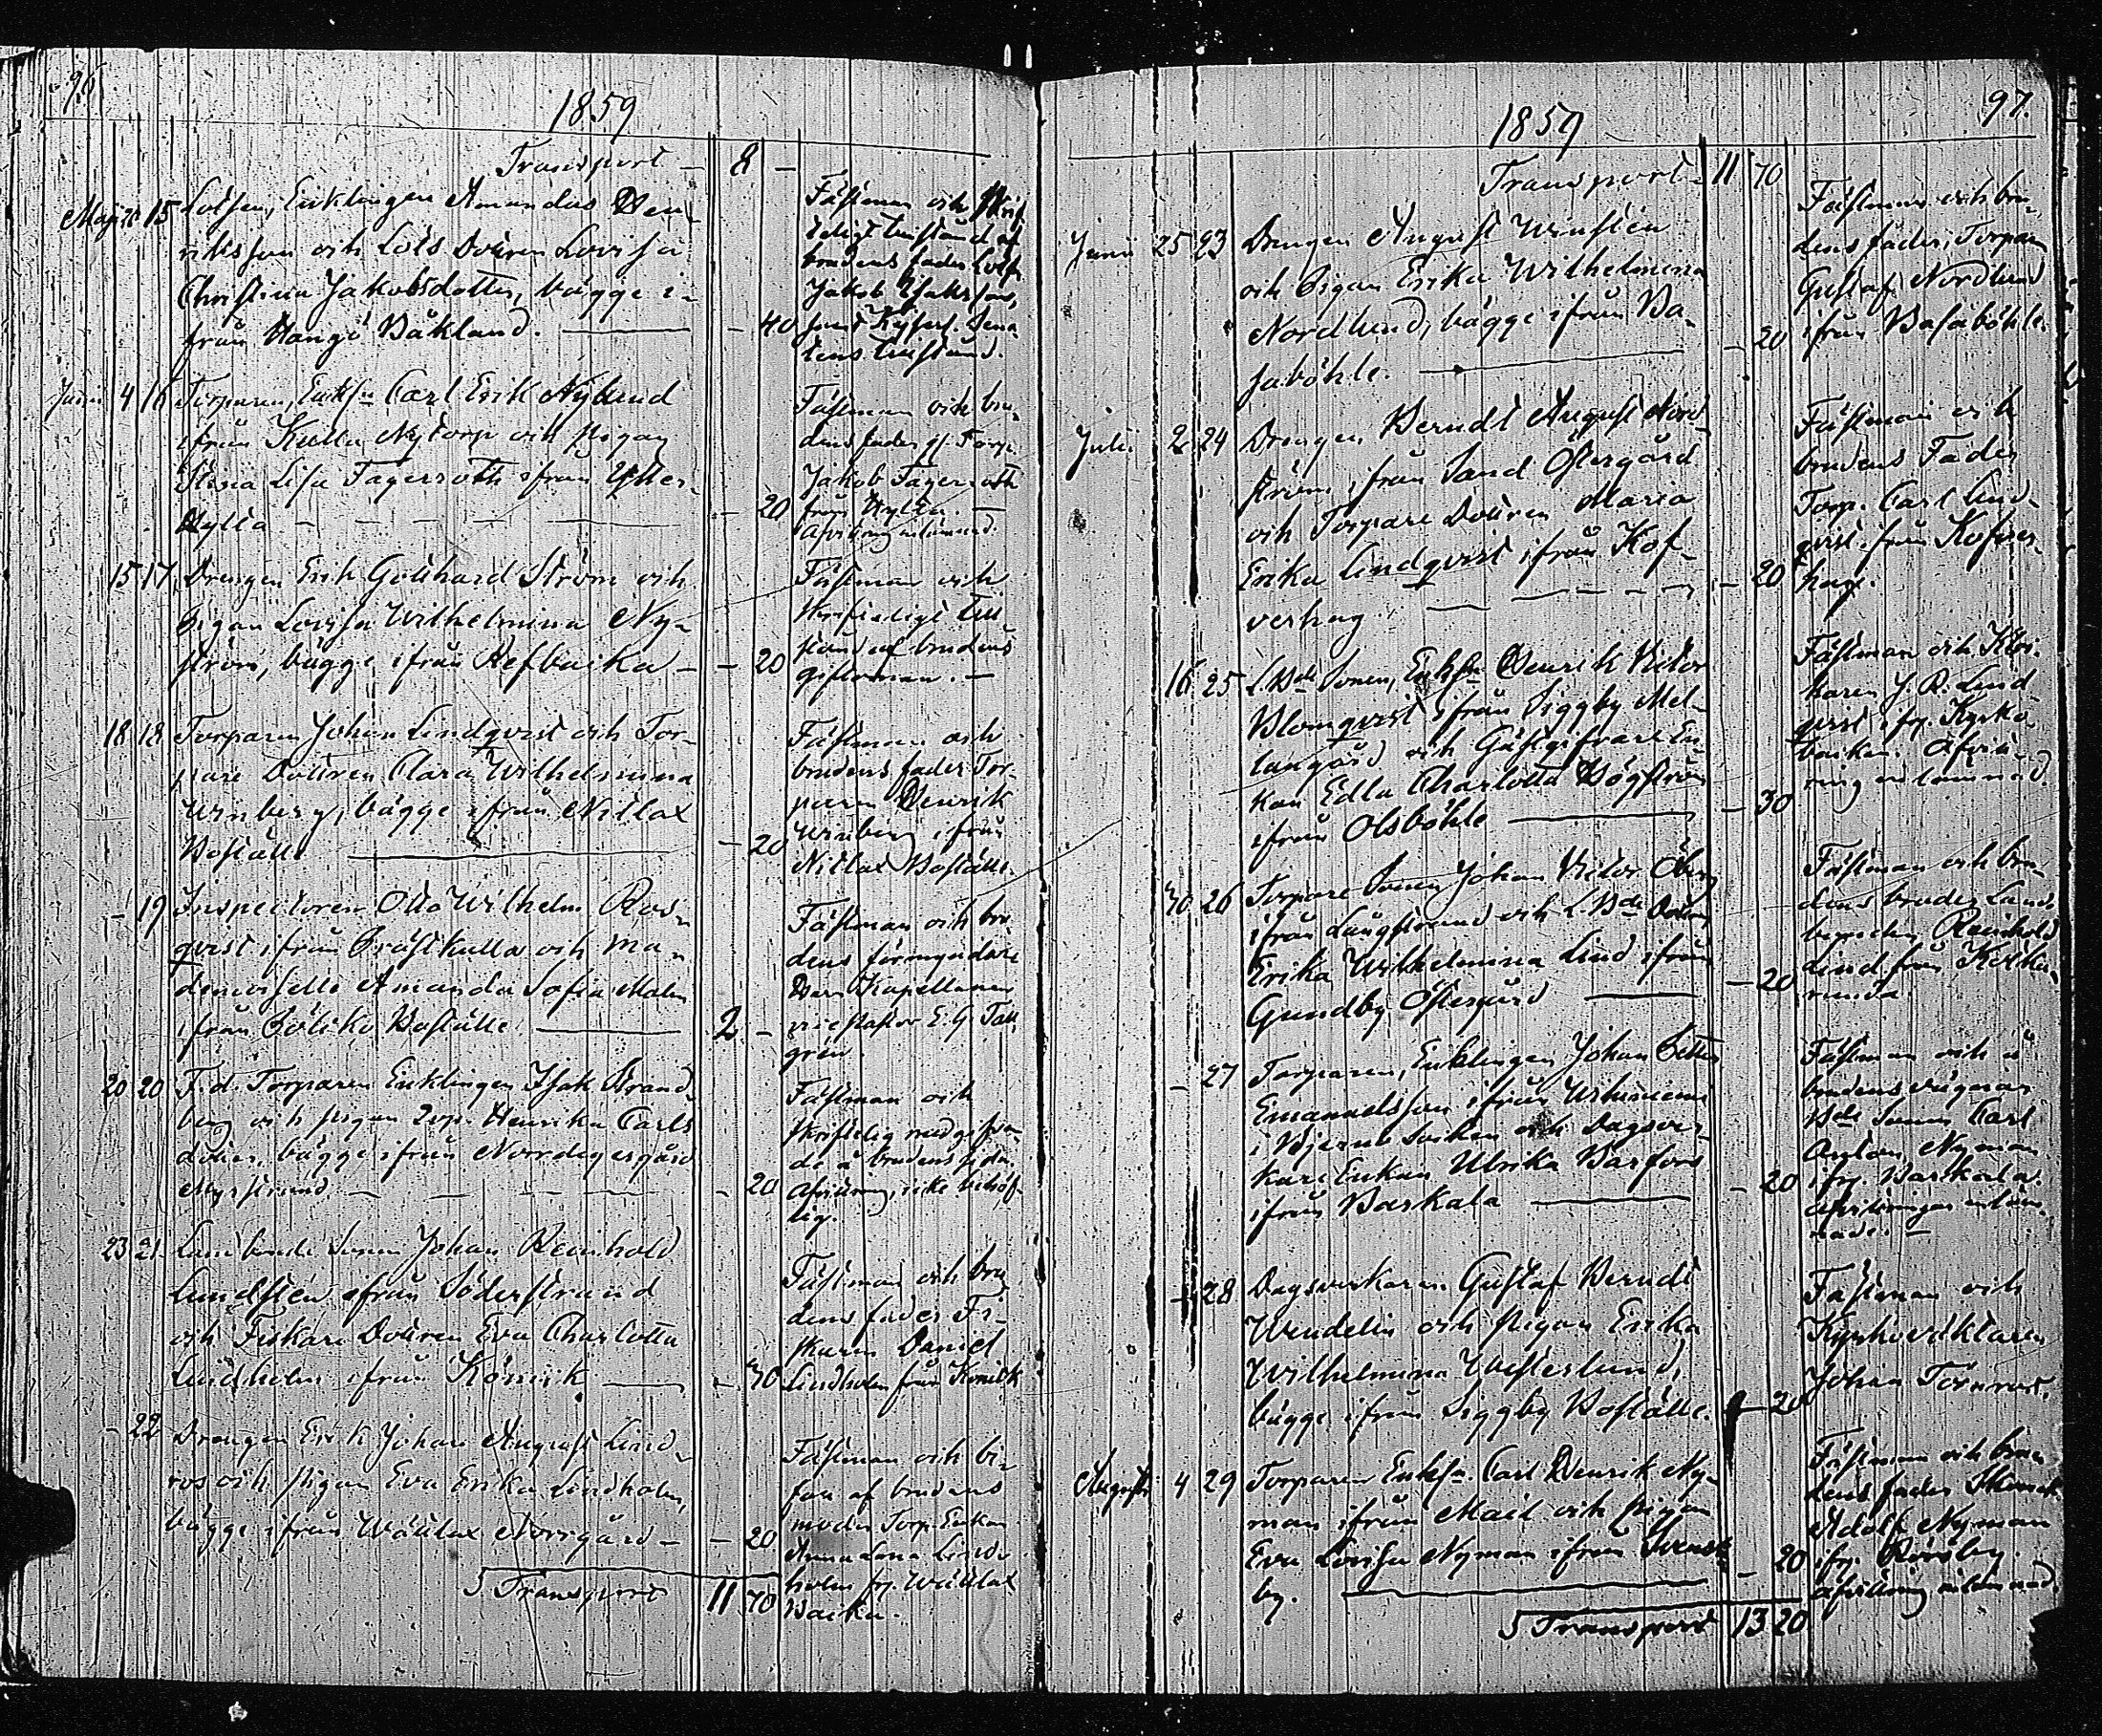 96
1859
Transport — 8 —
Maji 21 15 Lotsen, Enklingen Amandus Hen-
riksson och Lots Dottren Lovisa
Christina Jakobsdotter, bägge i-
från Hangö Båkland. — 40
Fästman och skrif-
teligt tillstånd af
brudens fader Lotsen
Jakob Isaksson,
samt Kejserl. Sena-
tens tillstånd.
Juni 4 16 Torparen, Enkln Carl Erik Nylund
ifrån Kulla Nytorp och pigan
Stina Lisa Fagerroth ifrån Ytter-
Kylla — 20
Fästman och bru-
dens fader Torp.
Jakob Fagerroth
från Kylla. —
Afvittring inlämnad.
15 17 Drengen Erik Gotthard Ström och
Pigan Lovisa Wilhelmina Ny-
ström, bägge ifrån Refbacka — 20
Fästman och
skrifteligt till-
stånd af brudens
giftoman. —
18 18 Torparen Johan Lindqvist och Tor-
pare Dottren Clara Wilhelmina
Winberg, bägge ifrån Nitlax
Boställe — 20
Fästman och
brudens fader Tor-
paren Henrik
Winberg ifrån
Nitlax Boställe.
— 19 Inspectoren Otto Wilhelm Ros-
qvist ifrån Prästkulla och Ma-
demoiselle Amanda Sofia Malm
ifrån Böliks Boställe — 2 —
Fästman och bru-
dens förmyndare
Herr Kapellanen
vicepastor E. G. Tall-
grén.
20 20 F. d. Torparen Enklingen Isak Strand-
berg och pigan Henrika Carls
dotter, bägge ifrån Norrdegergård
Nyystrand. — 20
Fästman och
skriftelig medgifvan-
de å brudens sida
Afvittring, icke behöf-
lig.
23 21 Landbonde Sonen Johan Reinhold
Lundstén ifrån Söderstrand
och Fiskare Dottren Eva Charlotta
Lindholm ifrån Könsik — 40
Fästman och bru-
dens fader Fi-
skaren Daniel
Lindholm från Könsik
— 22 Drengen Erik Johan August Lind-
ros och pigan Eva Erika Lindholm,
bägge ifrån Wättlax Norrgård — 20
Fästman och bi-
fall af brudens
moder Torp. Enkan
Anna Lena Lind-
holm fr. Wättlax
Backa.
Transport 11 70
97.
1859
Transport 11 70
Junii 25 23 Drengen August Winstén
och Pigan Erika Wilhelmina
Nordlund, bägge ifrån Ba-
saböhle. — 20
Fästman och bru-
dens fader, Torparen
Gustaf Nordlund
ifrån Basaböhle.
Julii 2 24 Drengen Berndt August Nord-
ström ifrån Sand Östergård
och Torpare Dottren Maria
Erika Lindqvist ifrån Kof-
verhag — 20
Fästman och
brudens Fader
Torp. Carl Lind-
qvist ifrån Kofver-
hag.
16 25 L. Bde Sonen, Enkln Henrik Victor
Blomqvist ifrån Siggby Mel-
langård och Gästgifvare En-
kan Edla Charlotta Högström
ifrån Olsböhle — 30
Fästman och Kloc-
karen J. R. Lind-
qvist ifr. Kyrko-
backen. Afvitt-
ring inlämnad.
30 26 Torpare Sonen Johan Victor Öberg
ifrån Långstrand och L. Bde Dottren
Erika Wilhelmina Lind ifrån
Gundby Östergård — 20
Fästman och bru-
dens broder Land-
bonden Reinhold
Lind från
— 27 Torparen, Enklingen Johan Petter
Emanuelsson ifrån
i Bjerno Socken och Dagsver-
kare Enkan Ulrika Barfors
ifrån Baskala — 20
Fästman och å
brudens vägnar
Bde Sonen Carl
Anton Nyman
ifr. Baskala.
Afvittringar inläm-
nade. —
— 28 Dagsverkaren Gustaf Berndt
Wendelin och Pigan Erika
Wilhelmina Westerlund,
bägge ifrån Siggby Boställe. — 20
Fästman och
Kyrkoväktaren
Johan Törnroos.
Augusti 4 29 Torparen Enkln. Carl Henrik Ny-
man ifrån Maël och pigan
Eva Lovisa Nyman ifrån Svensk-
by. — 20
Fästman och bru-
dens fader
Adolf Nyman
ifr.
Afvittring inlämnad.
Transport 13 20